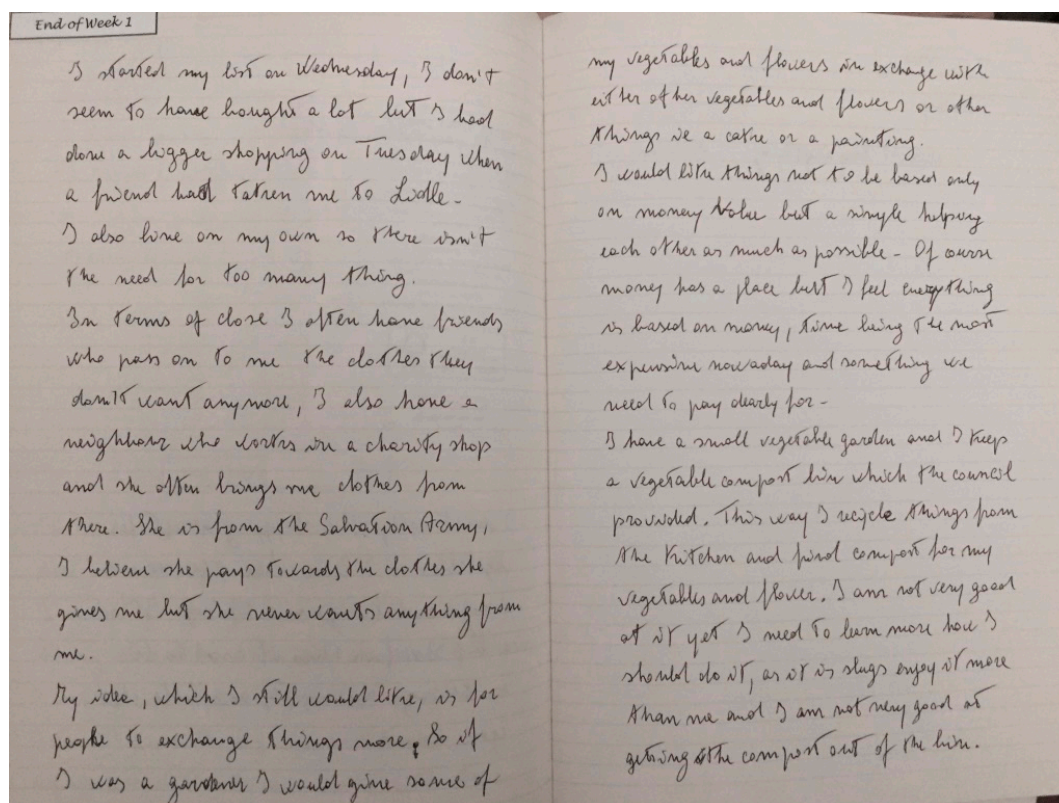 End of Week 1
I started my list on Wednesday, I don't
seem to have bought a lot but I had
done a bigger shopping on Tuesday when
a friend had taken me to Lidle -
I also live on my own so there isn't
the need for too many thing.
In terms of close I often have friends
who pass on to me the clothes they
don't want anymore, I also have a
neighbour who works in a charity shop
and she often brings me clothes from
there. She is from the Salvation Army,
I believe she pays towards the clothes she
gives me but she never wants anything from
me.
My idea, which I still would like, is for
people to exchange things more. So if
I was a gardener I would give some of
my vegetables and flowers in exchange with
either other vegetables and flowers or other
things ie a cake or a painting.
I would like things not to be based only
on money value but a simple helping
each other as much as possible - Of course
money has a place but I feel everything
is based on money, time being the most
expensive nowaday and something we
need to pay dearly for -
I have a small vegetable garden and I keep
a vegetable compost bin which the council
provided. This way I recycle things from
the kitchen and find compost for my
vegetables and flower. I am not very good
at it yet I need to learn more how I
should do it, as it is slugs enjoy it more
than me and I am not very good at
getting the compost out of the bin.